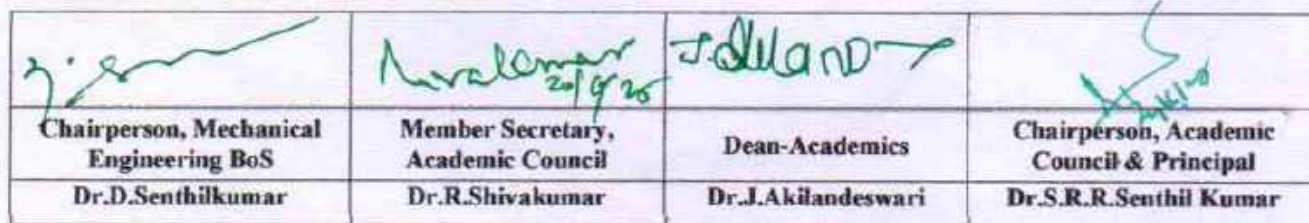 J. Akiland
20/9/25
Chairperson, Mechanical Engineering BoS
Member Secretary, Academic Council
Dean-Academics
Chairperson, Academic Council & Principal
Dr.D.Senthilkumar
Dr.R.Shivakumar
Dr.J.Akilandeswari
Dr.S.R.R.Senthil Kumar